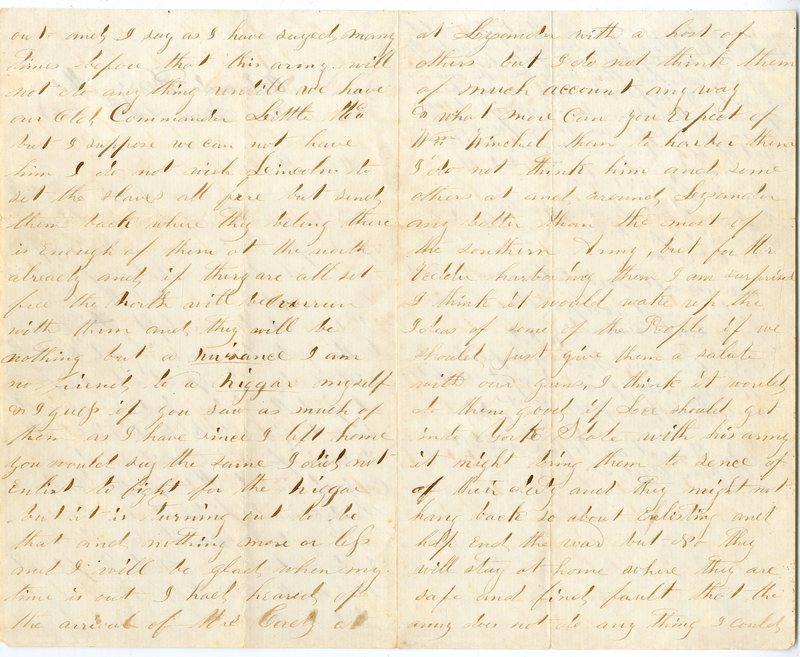 out to and, I say as I have sayed, many
times before that this army will
not do any thing untill we have
our Old, Commander Little Mc
but I suppose we can not have
him I do not wish Lincoln to
set the slaves all free but send,
them back where they belong there
is enough of them at the north
already and, if they are all set
free the North will be overrun
with them and, they will be
nothing but a nuisance I am
no friend, to a niggar myself
& I guess if you saw as much of
them as I have since I left home
you would say the same I did, not
Enlist to fight for the niggar
but it is turning out to be
that and, nothing more or less
and I will be glad, when my
time is out I had, heared, of
the arrival of Mrs at
at Lysander with a host of
others but I do not think them
of much account any way
what more can you Expect of
Wm Winchel than to harbor them
I do not think him and, some
others at and, around, Lysander
any better than the most of
the southern Army, but for Mr
harboring them I am surprised
I think it would wake up the
Ideas of some of the People if we
should just give them a salute
with our guns, I think it would,
do them good, if Lee should, get
into York State with his army
it might bring them to sence of
of their duty and they might not
hang back so about Enlisting and
help End, the war but no they
will stay at home where they are
safe and find, fault that the
army does not do any thing I could,